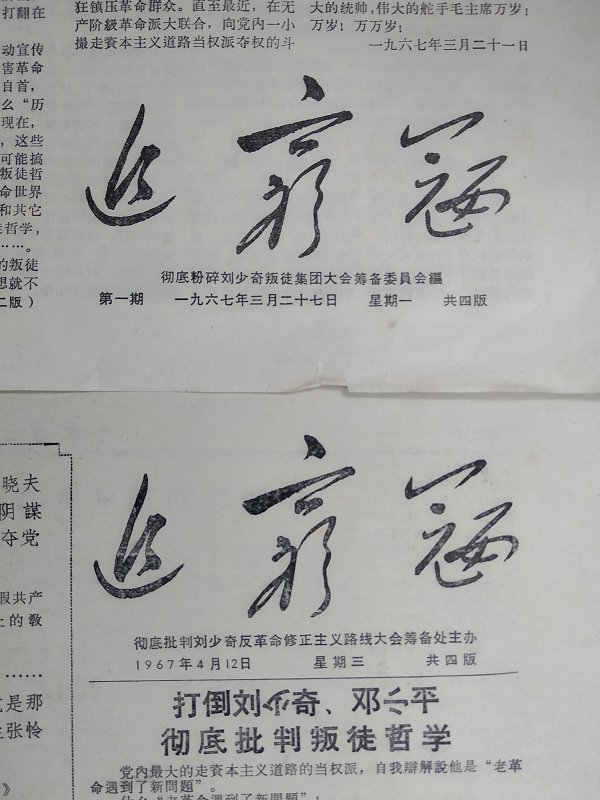 狂镇压革命群众。直至最近，在无
产阶級革命派大联合，向党内一小
撮走資本主义道路当权派夺权的斗
大的統帅，伟大的舵手毛主席万岁！
万岁！万万岁！
一九六七年三月二十一日
打翻在
动宣传
害革命
自首，
么“历
现在，
，这些
可能搞
叛徒哲
命世界
和其它
徒哲学，
……。
的叛徒
想就不
二版）
追穷寇
彻底粉碎刘少奇叛徒集团大会筹备委員会編
第一期 一九六七年三月二十七日 星期一 共四版
晓夫
阴謀
夺党
假共产
上的敎
……
就是那
主张怜
》
追穷寇
彻底批判刘少奇反革命修正主义路线大会筹备处主办
1967年4月12日 星期三 共四版
打倒刘少奇、邓小平
彻底批判叛徒哲学
党內最大的走資本主义道路的当权派，自我辯解說他是“老革
命遇到了新問題”。
什么“老革命遇到了新問題”！